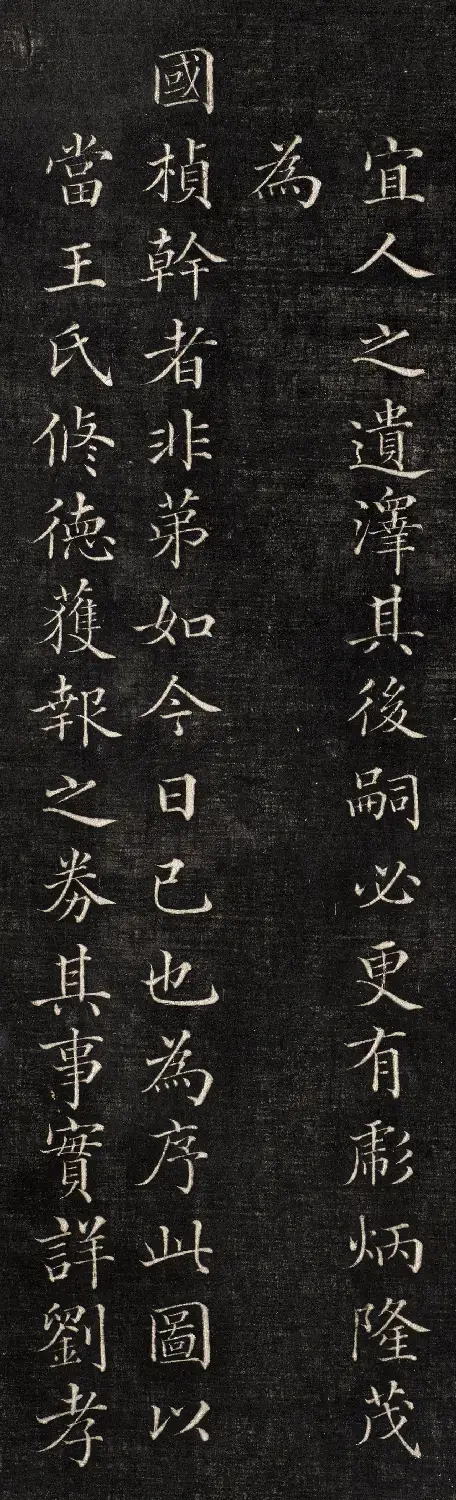 宜人之遺澤其後嗣必更有彪炳隆茂
為
國楨幹者非第如今日已也為序此圖以
當王氏修德獲報之券其事實詳劉孝